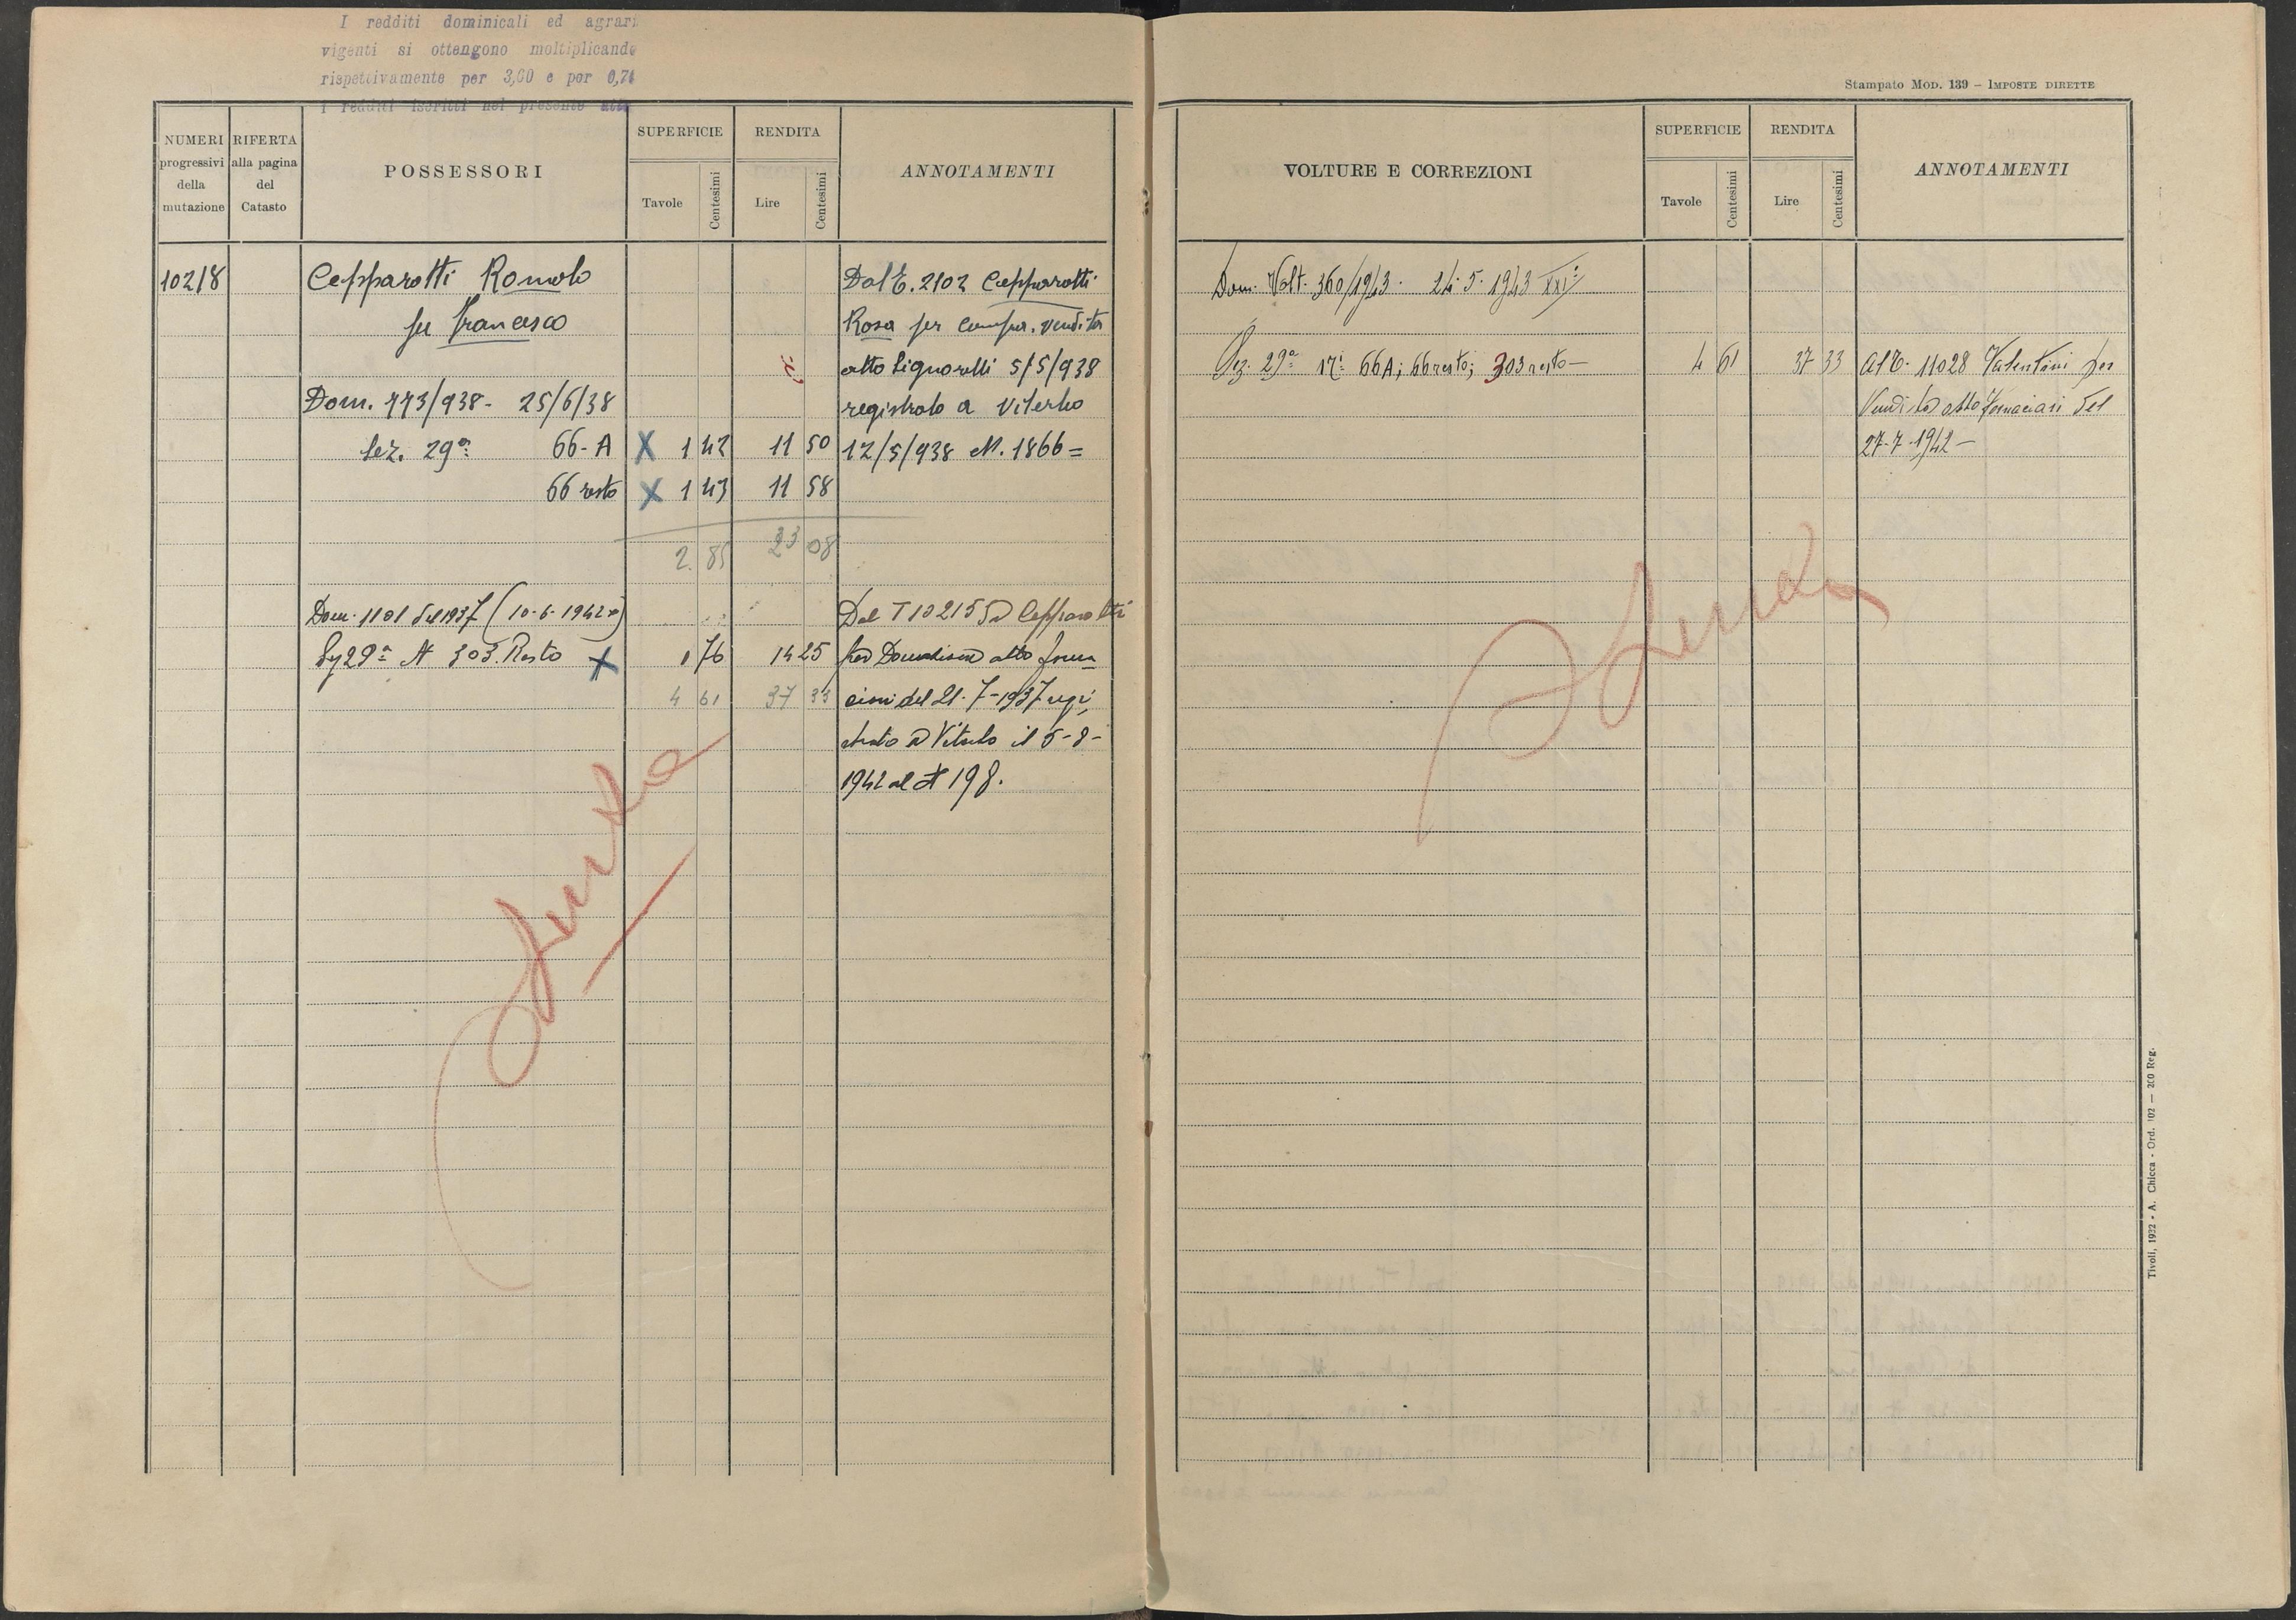 I redditi dominicali ed agrari
vigenti si ottengono moltiplicando
rispettivamente per 3,00 e per 0,7
i redditi iscritti nel presente atto
NUMERI progressivi della mutazione
RIFERTA alla pagina del Catasto
POSSESSORI
SUPERFICIE
Tavole
Centesimi
RENDITA
Lire
Centesimi
ANNOTAMENTI
10218
Cepparotti Romolo
fu Francesco
Dom. 773/938 - 25/6/38
Sez. 29ª 66-A X 1 42 11 50
66 resto X 1 43 11 58
2. 85 23 08
Dom. 1101 del 1937 (10-6-1942)
29ª N 303. Resto X 1 76 14 25
4 61 37 33
Dal T. 2102 Cepparotti
Rosa per compra. vendita
atto Signorelli 5/5/938
registrato a Viterbo
12/5/938 N. 1866 =
Dal T 10215 Cepparotti
per Donazione atto Forna
ciari del 21-7-1937 regi,
strato a Viterbo il 5-8-
1942 al N 198.
Stampato Mod. 139 - Imposte dirette
VOLTURE E CORREZIONI
SUPERFICIE
Tavole
Centesimi
RENDITA
Lire
Centesimi
ANNOTAMENTI
Dom. Volt. 360/1943. 24-5-1943 XXI
Sez. 29ª 66A; 66 resto; 303 resto — 4 61 37 33
Al T. 11028 Valentini per
Vendita atto Fornaciari del
27-7-1942 —
Tivoli, 1932 - A. Chicca - Ord. 102 — 200 Reg.